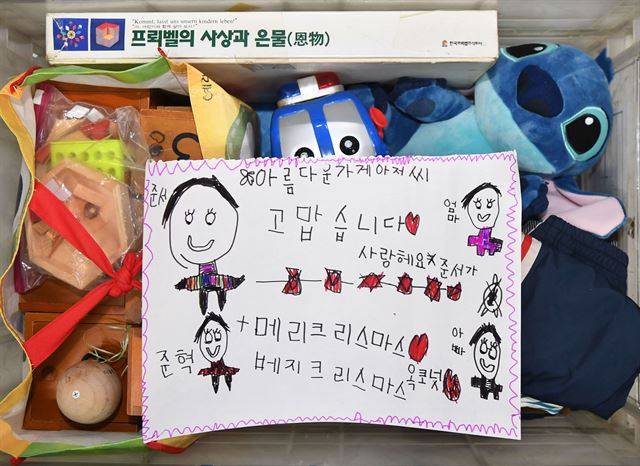 "Kommt, lasst uns unsern kindern leben!"
프뢰벨의 사상과 은물(恩物)
한국프뢰벨주식회사
아름다운가게아저씨
준서
고맙습니다
엄마
사랑해요 준서가
+메리크리스마스
아빠
준혁
베지크리스마스
옥코넛